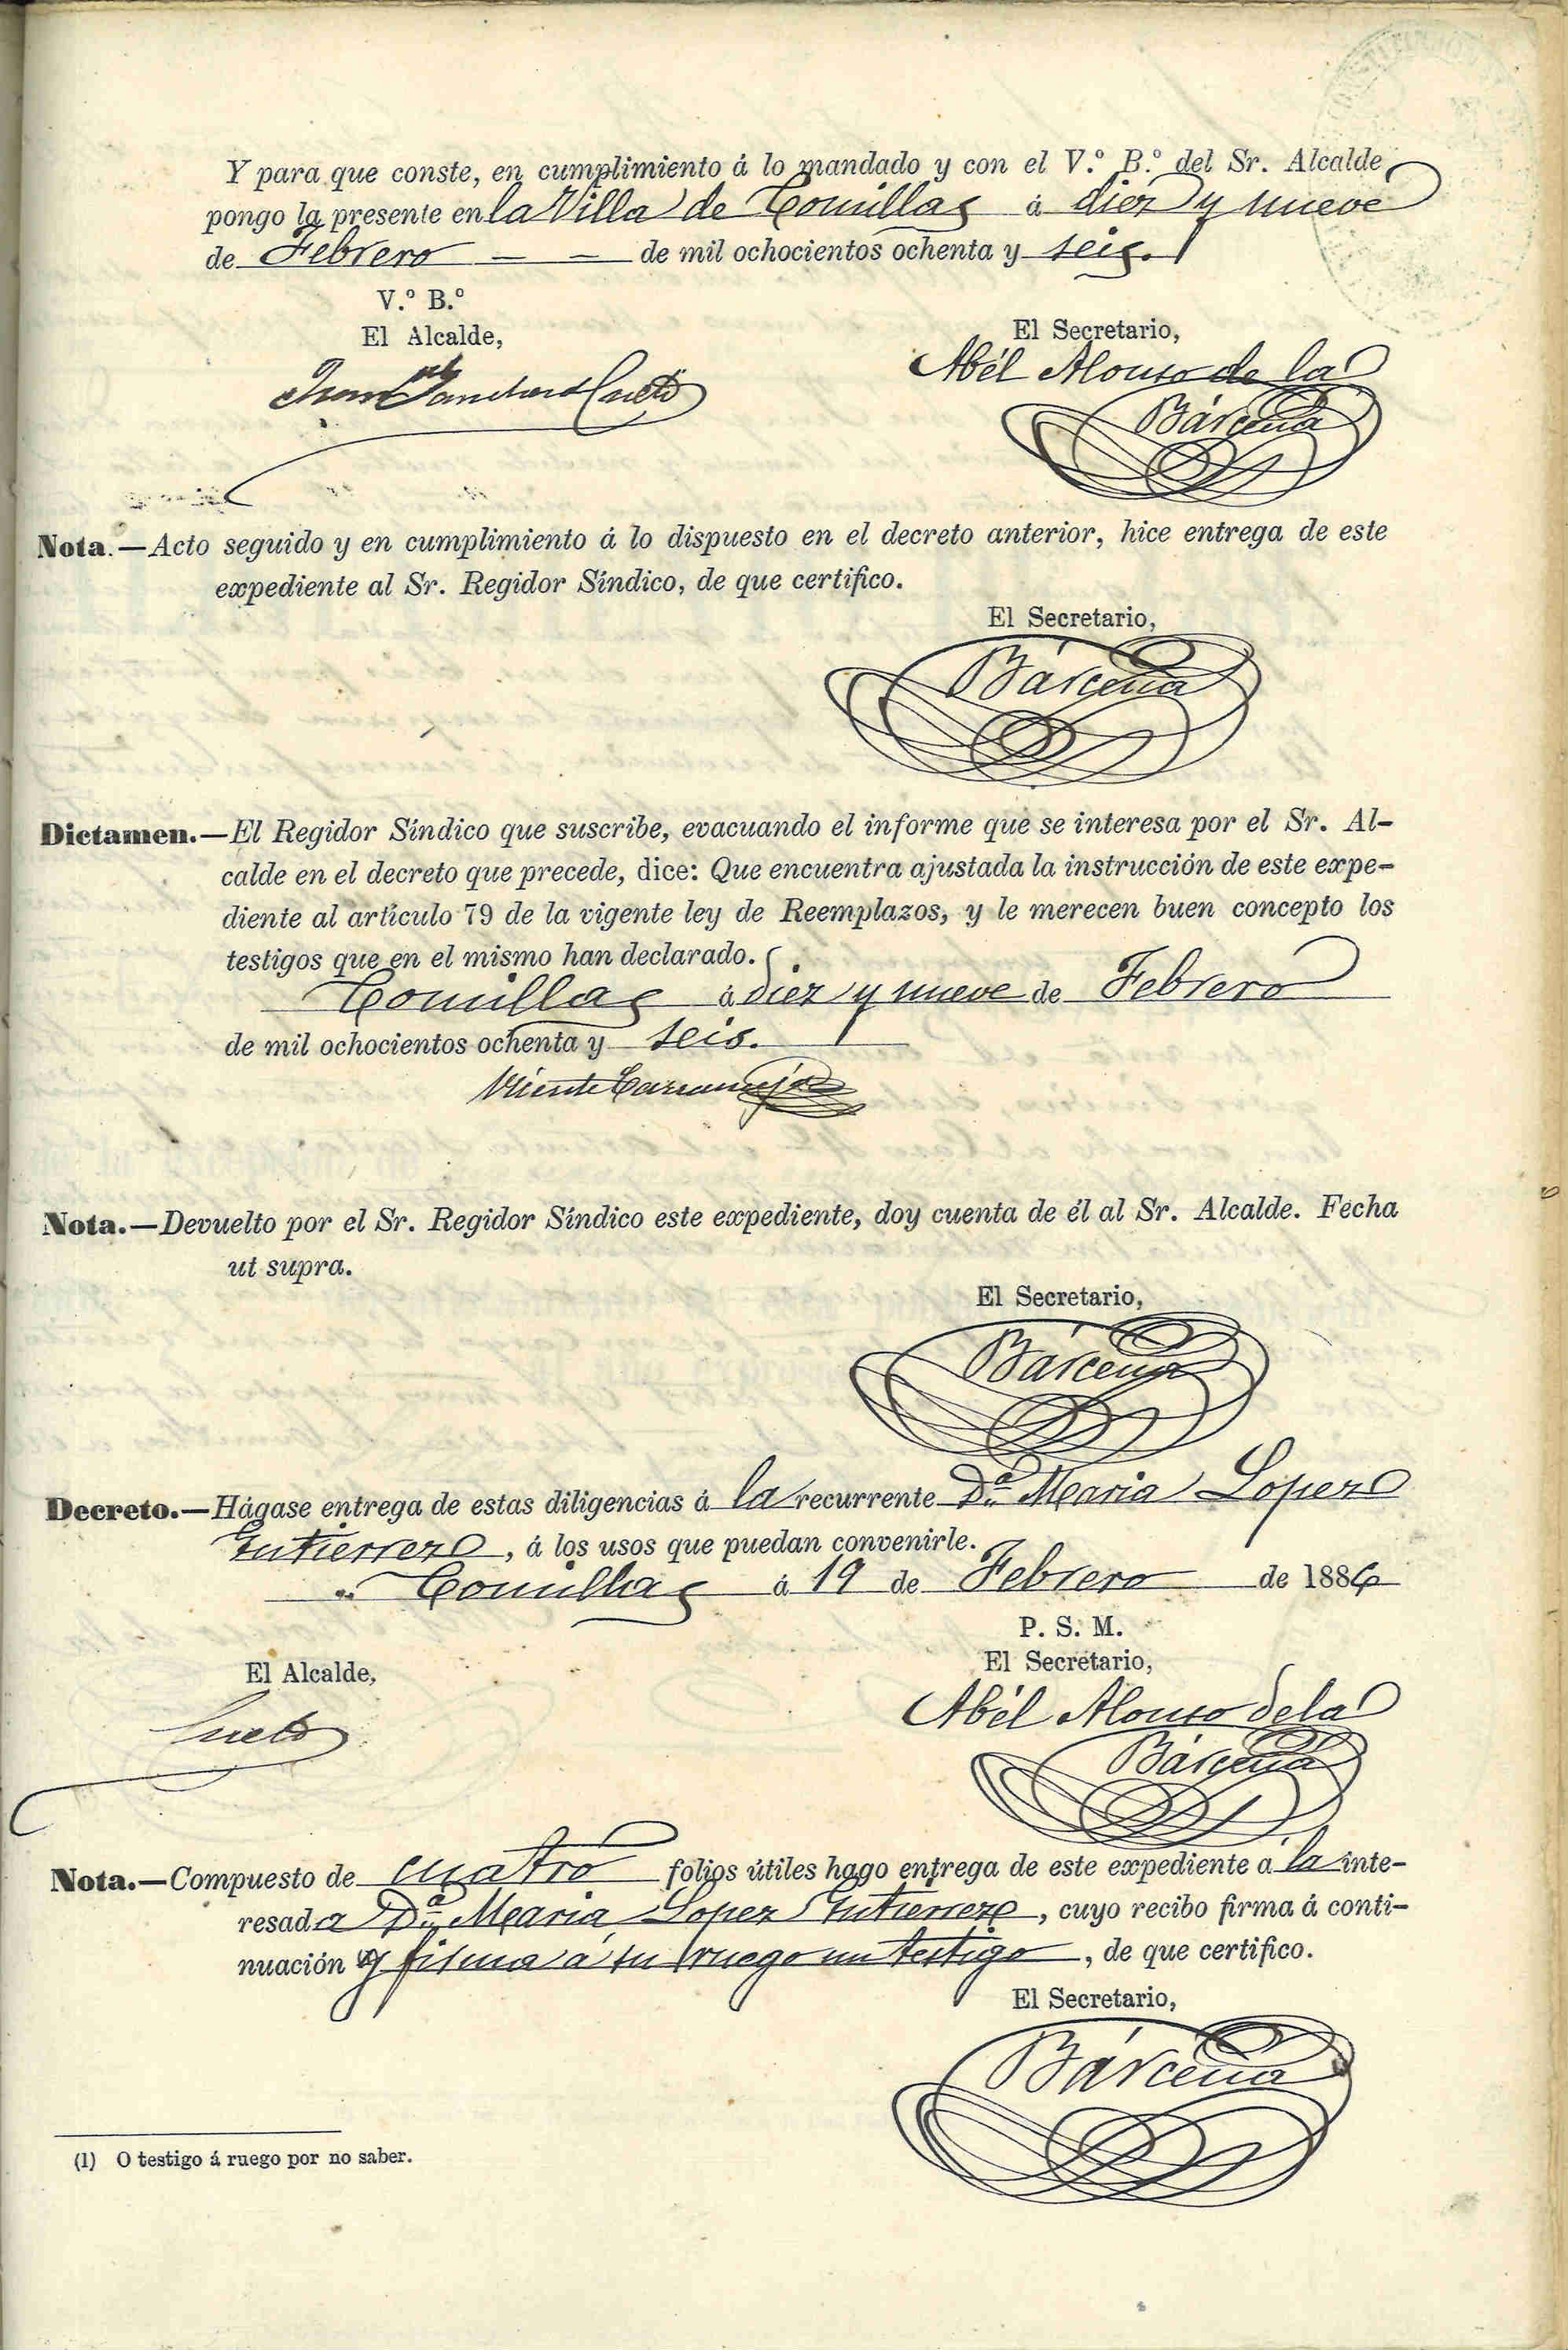 Y para que conste, en cumplimiento á lo mandado y con el V.º B.º del Sr. Alcalde
pongo la presente en la Villa de Comillas á diez y nueve
de Febrero — — de mil ochocientos ochenta y seis.
V.º B.º
El Alcalde,
El Secretario,
Abél Alonso de la
Bárcena
Cueto
Nota.—Acto seguido y en cumplimiento á lo dispuesto en el decreto anterior, hice entrega de este
expediente al Sr. Regidor Síndico, de que certifico.
El Secretario,
Bárcena
Dictamen.—El Regidor Síndico que suscribe, evacuando el informe que se interesa por el Sr. Al-
calde en el decreto que precede, dice: Que encuentra ajustada la instrucción de este expe-
diente al artículo 79 de la vigente ley de Reemplazos, y le merecen buen concepto los
testigos que en el mismo han declarado.
Comillas á diez y nueve de Febrero
de mil ochocientos ochenta y seis.
Vicente
Nota.—Devuelto por el Sr. Regidor Síndico este expediente, doy cuenta de él al Sr. Alcalde. Fecha
ut supra.
El Secretario,
Bárcena
Decreto.—Hágase entrega de estas diligencias á la recurrente Dª Maria Lopez
Gutierrez, á los usos que puedan convenirle.
Comillas á 19 de Febrero de 1886
P. S. M.
El Alcalde,
El Secretario,
Cueto
Abél Alonso de la
Bárcena
Nota.—Compuesto de cuatro folios útiles hago entrega de este expediente á la inte-
resada Dª Maria Lopez Gutierrez, cuyo recibo firma á conti-
nuación y firma á su ruego un testigo, de que certifico.
El Secretario,
Bárcena
(1) O testigo á ruego por no saber.